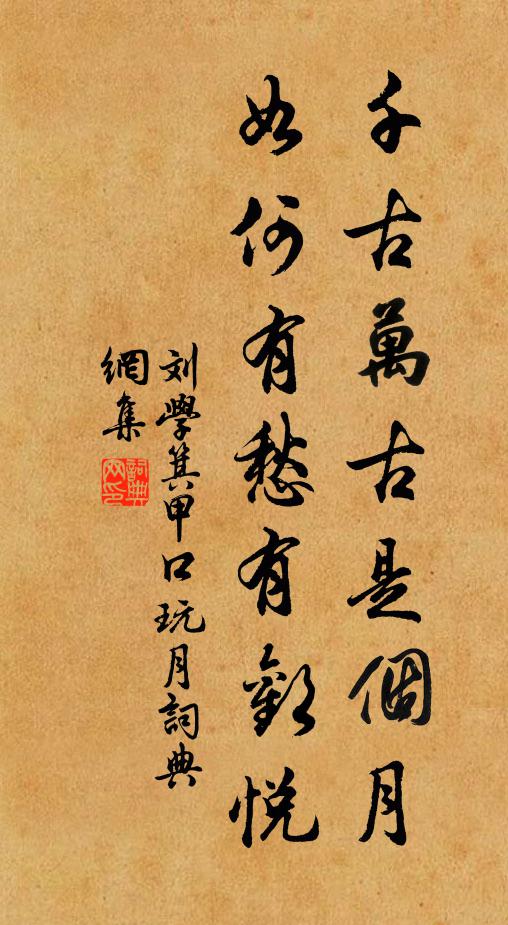 千古萬古是個月
如何有愁有歡悅
刘學箕甲口玩月詞典
網集
詞典網印